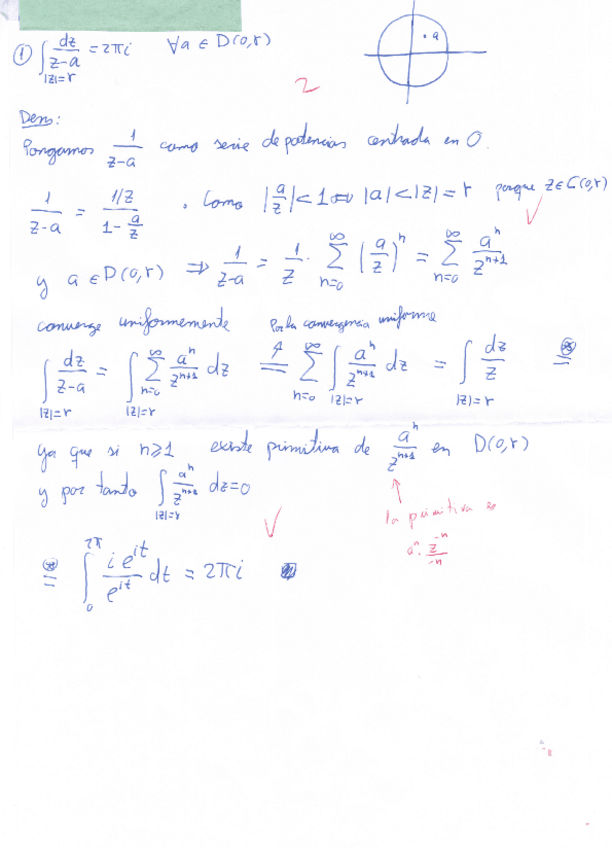 ① ∫_{|z|=r} dz/(z-a) = 2πi ∀a ∈ D(0,r)
a
2
Dem:
Pongamos 1/(z-a) como serie de potencias centrada en 0.
1/(z-a) = (1/z)/(1 - a/z) . Como |a/z| < 1 ⟺ |a| < |z| = r porque z ∈ C(0,r)
y a ∈ D(0,r) ⟹ 1/(z-a) = 1/z · ∑_{n=0}^{∞} (a/z)^n = ∑_{n=0}^{∞} a^n/z^{n+1}
converge uniformemente Por la convergencia uniforme
∫_{|z|=r} dz/(z-a) = ∫_{|z|=r} ∑_{n=0}^{∞} a^n/z^{n+1} dz = ∑_{n=0}^{∞} ∫_{|z|=r} a^n/z^{n+1} dz = ∫_{|z|=r} dz/z ⊛=
ya que si n≥1 existe primitiva de a^n/z^{n+1} en D(0,r)
y por tanto ∫_{|z|=r} a^n/z^{n+1} dz = 0
la primitiva es
a^n · z^{-n}/-n
⊛= ∫_0^{2π} i e^{it}/e^{it} dt = 2πi